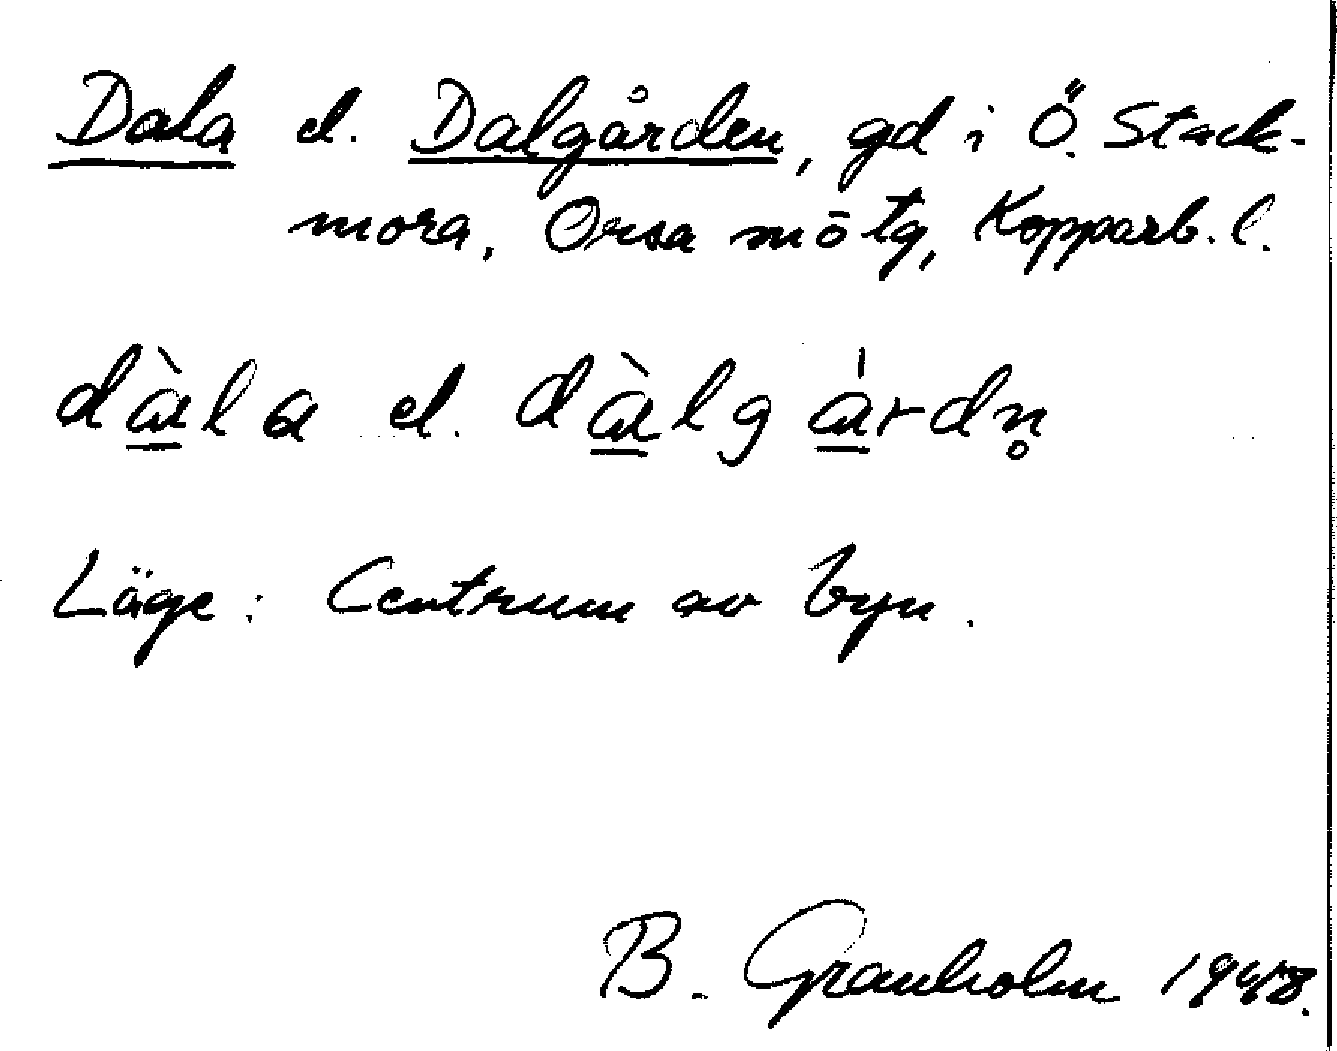 Dala el. Dalgården, gd i Ö. Stack-
mora, Orsa mötg, Kopparb. l.
dàla el. dàlgárdn̥
Läge: Centrum av byn.
B. Granholm 1948.